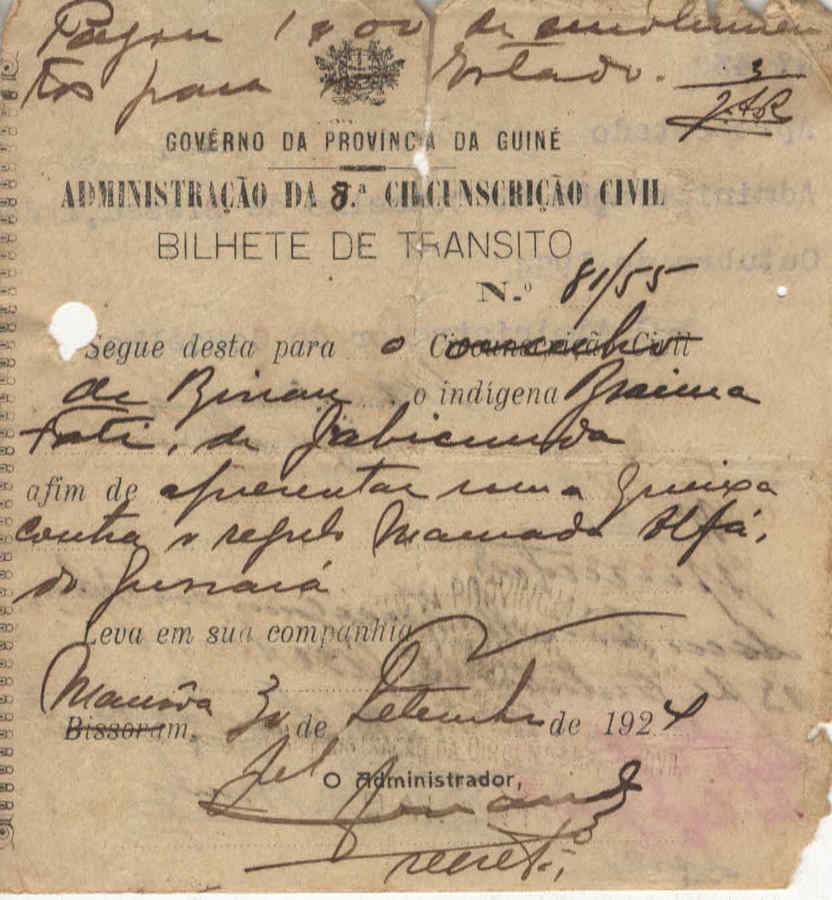 Pagou 1$00 de emolumen
tos para Estado.
GOVÊRNO DA PROVÍNCIA DA GUINÉ
ADMINISTRAÇÃO DA 8.ª CIRCUNSCRIÇÃO CIVIL
BILHETE DE TRANSITO
N.º 81/55
Segue desta para o Circunscrição Civil
de Bissau o indígena Braima
Fati, de
afim de apresentar uma queixa
contra o regulo Mamadú Alfá,
do
Leva em sua companhia
Mansôa 30 de Setembro de 1924
Bissoram,
O Administrador,